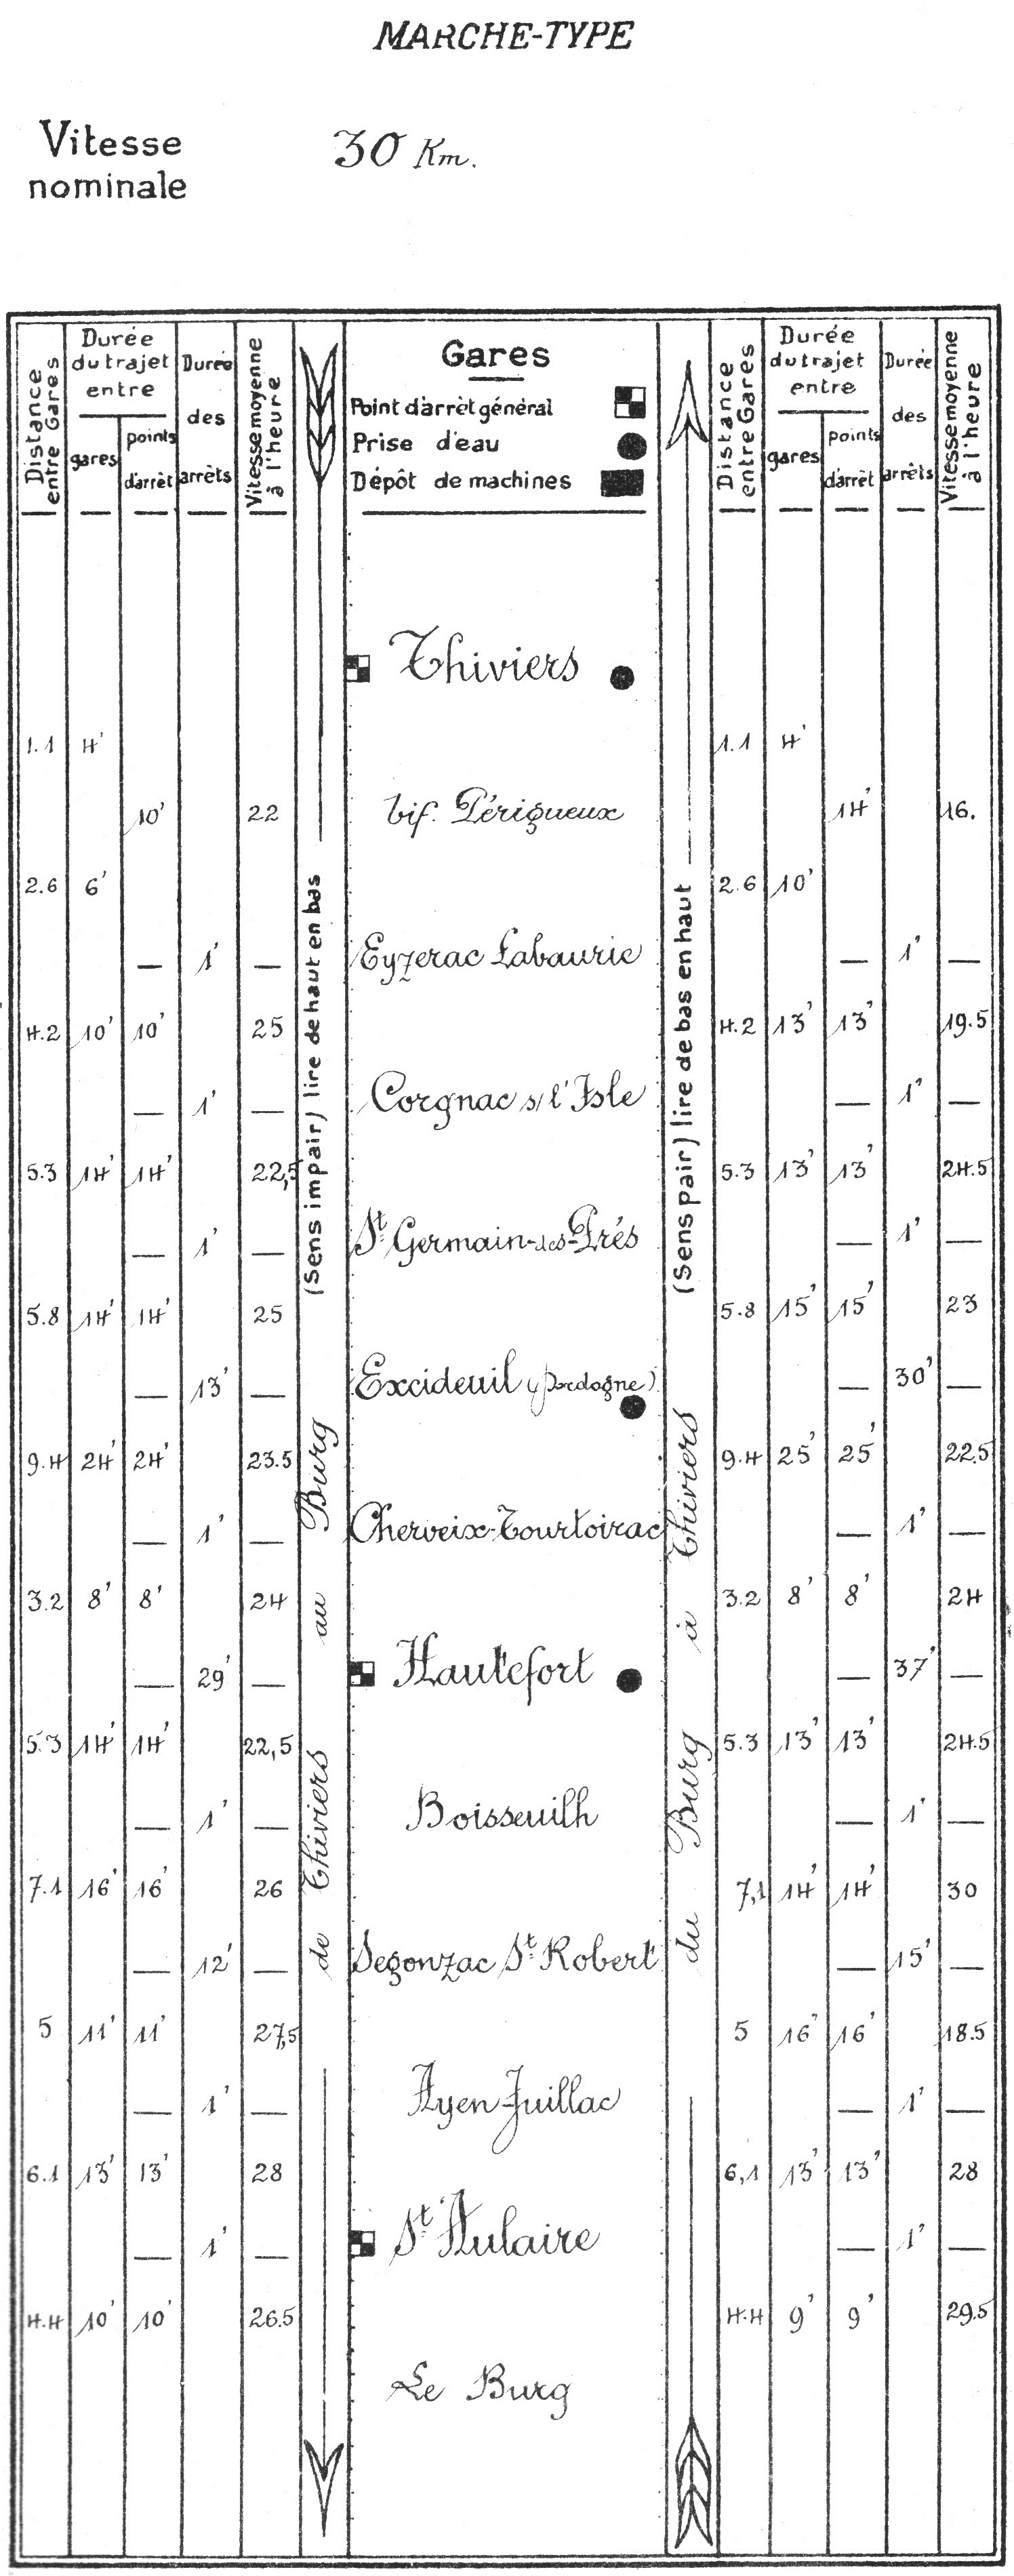 MARCHE-TYPE
Vitesse
nominale
30 Km.
Distance
entre Gares
Durée
du trajet
entre
gares
points
d'arrêt
Durée
des
arrêts
Vitesse moyenne
à l'heure
Gares
Point d'arrêt général
Prise d'eau
Dépôt de machines
Distance
entre Gares
Durée
du trajet
entre
gares
points
d'arrêt
Durée
des
arrêts
Vitesse moyenne
à l'heure
(Sens impair) lire de haut en bas
de Thiviers au Burg
(Sens pair) lire de bas en haut
du Burg à Thiviers
Thiviers
1.1 4' 1.1 4'
10' 22 bif. Périgueux 14' 16.
2.6 6' 2.6 10'
— 1' — Eyzerac Labaurie — 1' —
4.2 10' 10' 25 4.2 13' 13' 19.5
— 1' — Corgnac s/ l'Isle — 1' —
5.3 14' 14' 22,5 5.3 13' 13' 24.5
— 1' — St Germain-des-Prés — 1' —
5.8 14' 14' 25 5.8 15' 15' 23
— 13' — Excideuil (Dordogne) — 30' —
9.4 24' 24' 23.5 9.4 25' 25' 22.5
— 1' — Cherveix-Tourtoirac — 1' —
3.2 8' 8' 24 3.2 8' 8' 24
— 29' — Hautefort — 37' —
5.3 14' 14' 22,5 5.3 13' 13' 24.5
— 1' — Boisseuilh — 1' —
7.1 16' 16' 26 7,1 14' 14' 30
— 12' — Segonzac St Robert — 15' —
5 11' 11' 27,5 5 16' 16' 18.5
— 1' — Ayen-Juillac — 1' —
6.1 13' 13' 28 6,1 13' 13' 28
— 1' — St Aulaire — 1' —
4.4 10' 10' 26.5 4.4 9' 9' 29.5
Le Burg